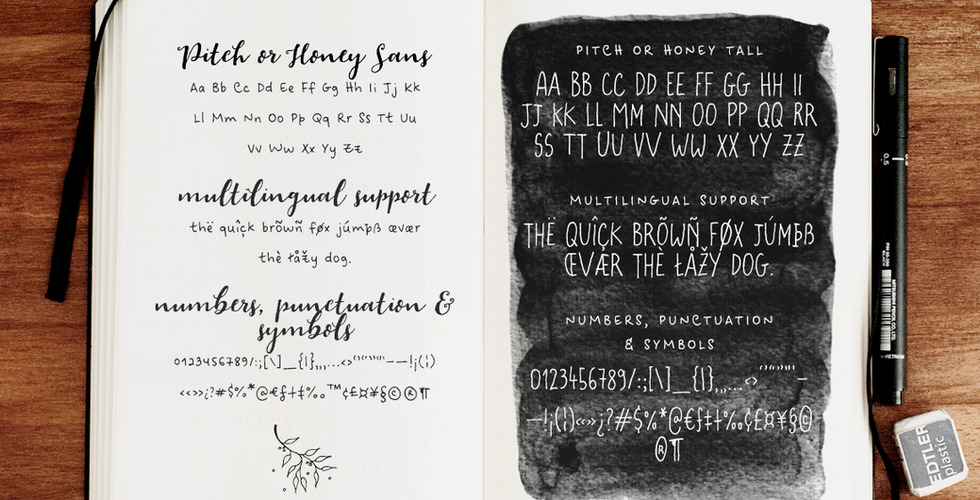 Pitch or Honey Sans
Aa Bb Cc Dd Ee Ff Gg Hh Ii Jj Kk
Ll Mm Nn Oo Pp Qq Rr Ss Tt Uu
Vv Ww Xx Yy Zz
multilingual support
thë quîçk brõwñ føx júmþß œvær
thè łåžy dog.
numbers, punctuation &
symbols
0123456789/:;[\]__{|},,,...<>
«‹›»¿?#$%*@€ƒ†‡‰∞™¢£¤¥§©®¶
PITCH OR HONEY TALL
AA BB CC DD EE FF GG HH II
JJ KK LL MM NN OO PP QQ RR
SS TT UU VV WW XX YY ZZ
MULTILINGUAL SUPPORT
THË QUÎÇK BRÕWÑ FØX JÚMÞß
ŒVÆR THÈ ŁÅŽY DOG.
NUMBERS, PUNCTUATION
& SYMBOLS
0123456789/:;[\]__{|},,,...<>
—!¡(¦)«‹›»¿?#$%*@€ƒ†‡‰¢£¤¥§©
®¶
0.5
EDTLER
plastic